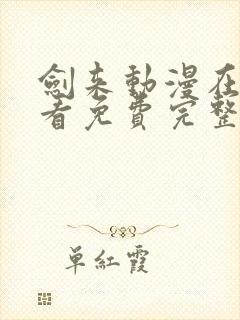 劍来動漫在
看免費完整
单紅霞